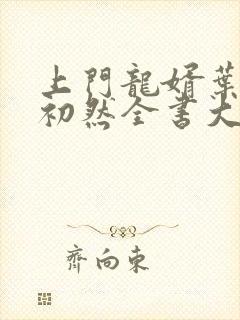 上門龍婿葉
初然全書大
齊向東